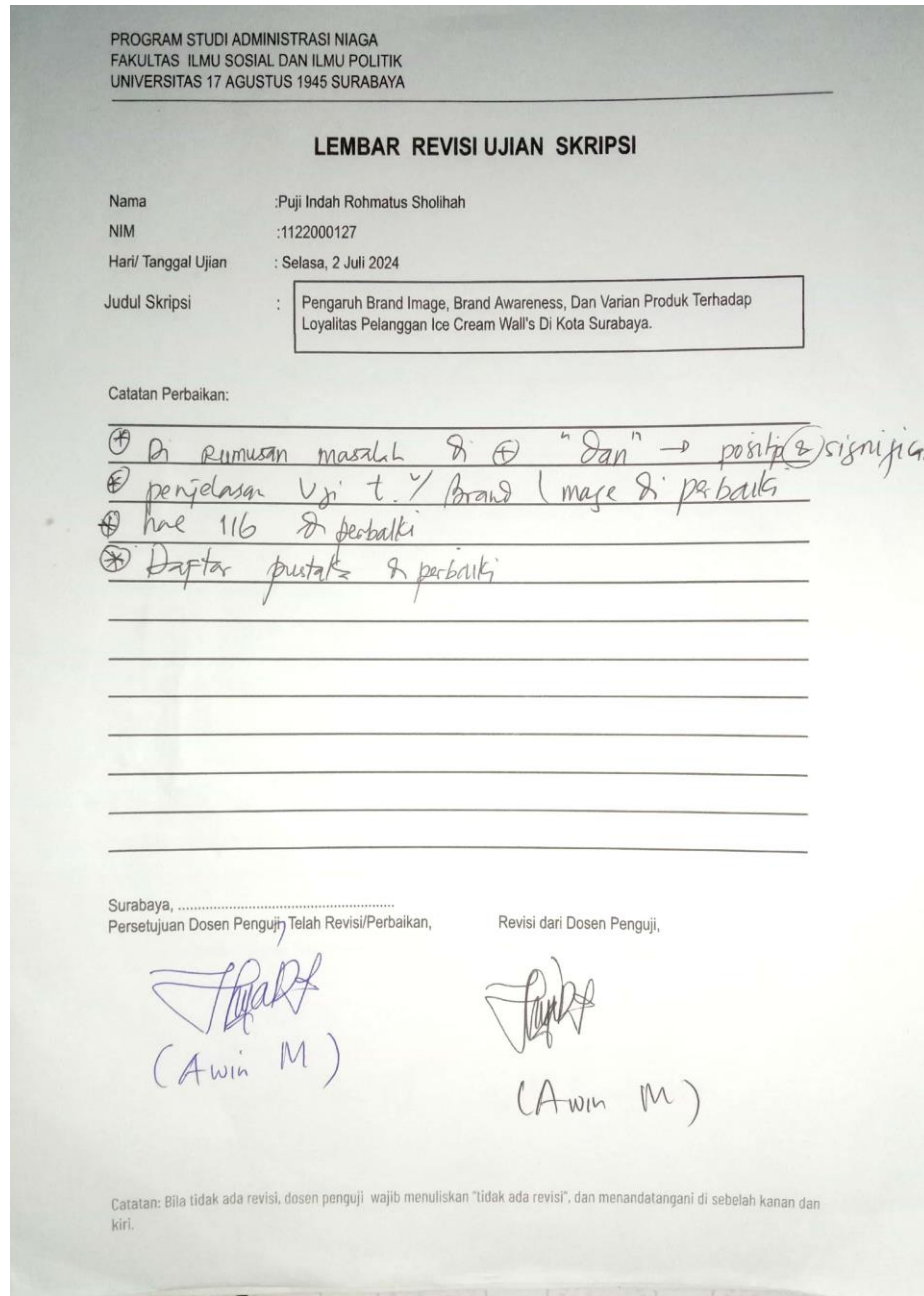 PROGRAM STUDI ADMINISTRASI NIAGA
FAKULTAS ILMU SOSIAL DAN ILMU POLITIK
UNIVERSITAS 17 AGUSTUS 1945 SURABAYA
LEMBAR REVISI UJIAN SKRIPSI
Nama :Puji Indah Rohmatus Sholihah
NIM :1122000127
Hari/ Tanggal Ujian : Selasa, 2 Juli 2024
Judul Skripsi : Pengaruh Brand Image, Brand Awareness, Dan Varian Produk Terhadap
Loyalitas Pelanggan Ice Cream Wall's Di Kota Surabaya.
Catatan Perbaikan:
Di Rumusan masalah di + "dan" → positip & signifi
penjelasan Uji t. Brand Image di perbaiki
hal 116 di perbaiki
Daftar pustaka di perbaiki
Surabaya, ......................................................
Persetujuan Dosen Penguji, Telah Revisi/Perbaikan, Revisi dari Dosen Penguji,
(Awin M) (Awin M)
Catatan: Bila tidak ada revisi, dosen penguji wajib menuliskan "tidak ada revisi", dan menandatangani di sebelah kanan dan
kiri.